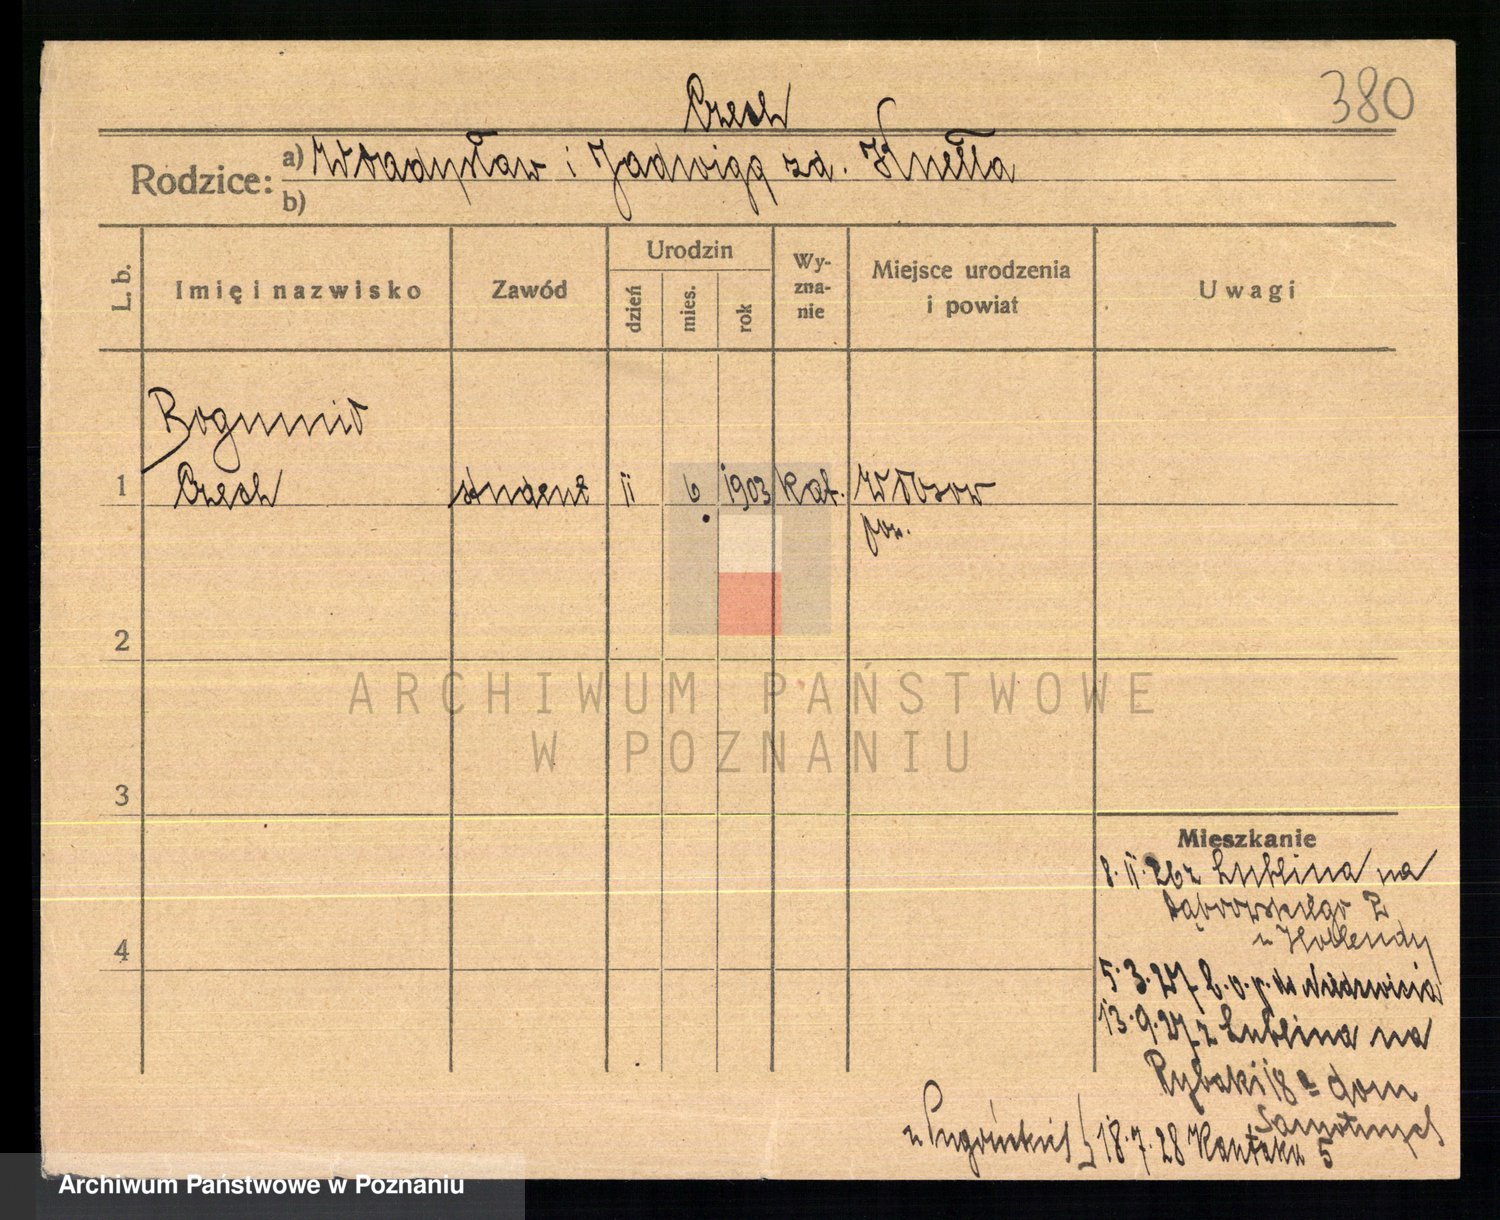 380
Czech
Rodzice: a) Władysław i Jadwiga zd. Knełła
b)
L. b.
Imię i nazwisko
Zawód
Urodzin
dzień
mies.
rok
Wy-
zna-
nie
Miejsce urodzenia
i powiat
Uwagi
Bogumił
1 Czech student 11 6 1903 kat.
por.
2
3
4
Mieszkanie
8. 11. 26 z Lublina na
Dąbrowskiego
u Hollendy
5. 3. 27 do
13. 9. 27 z Lublina na
Rybaki 18a dom
Samotnych
u } 18. 7. 28 Kantaka 5
ARCHIWUM PAŃSTWOWE
W POZNANIU
Archiwum Państwowe w Poznaniu